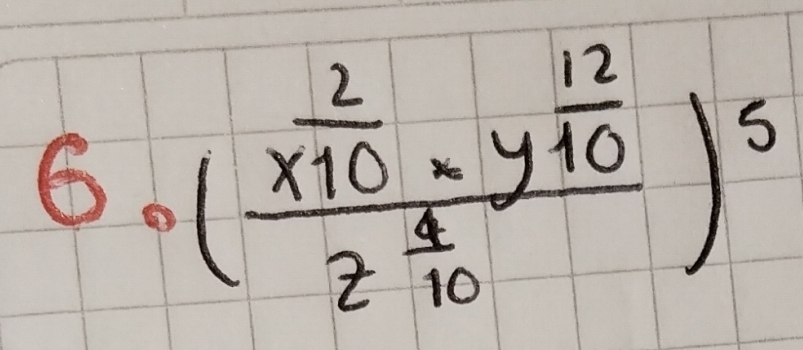 6. ( \frac{x^{\frac{2}{10}} \times y^{\frac{12}{10}}}{z^{\frac{4}{10}}} )^5